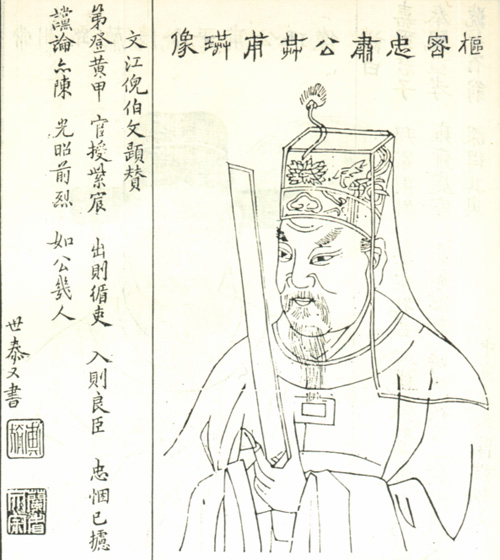 樞密忠肅公共甫珙像
文江倪伯文題賛
第登黃甲 官授紫宸 出則循吏 入則良臣 忠悃已攄
讜論亦陳 光昭前烈 如公幾人
世泰又書